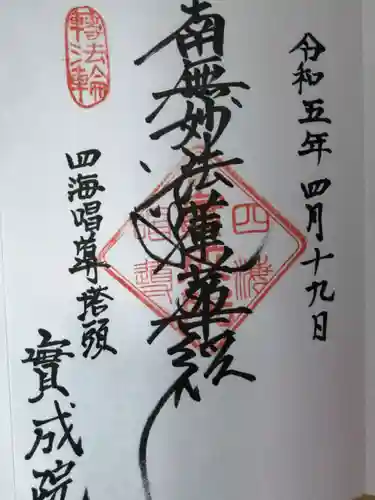 令和五年 四月十九日
南無妙法蓮華経
轉法輪
四海唱導 塔頭
實成院